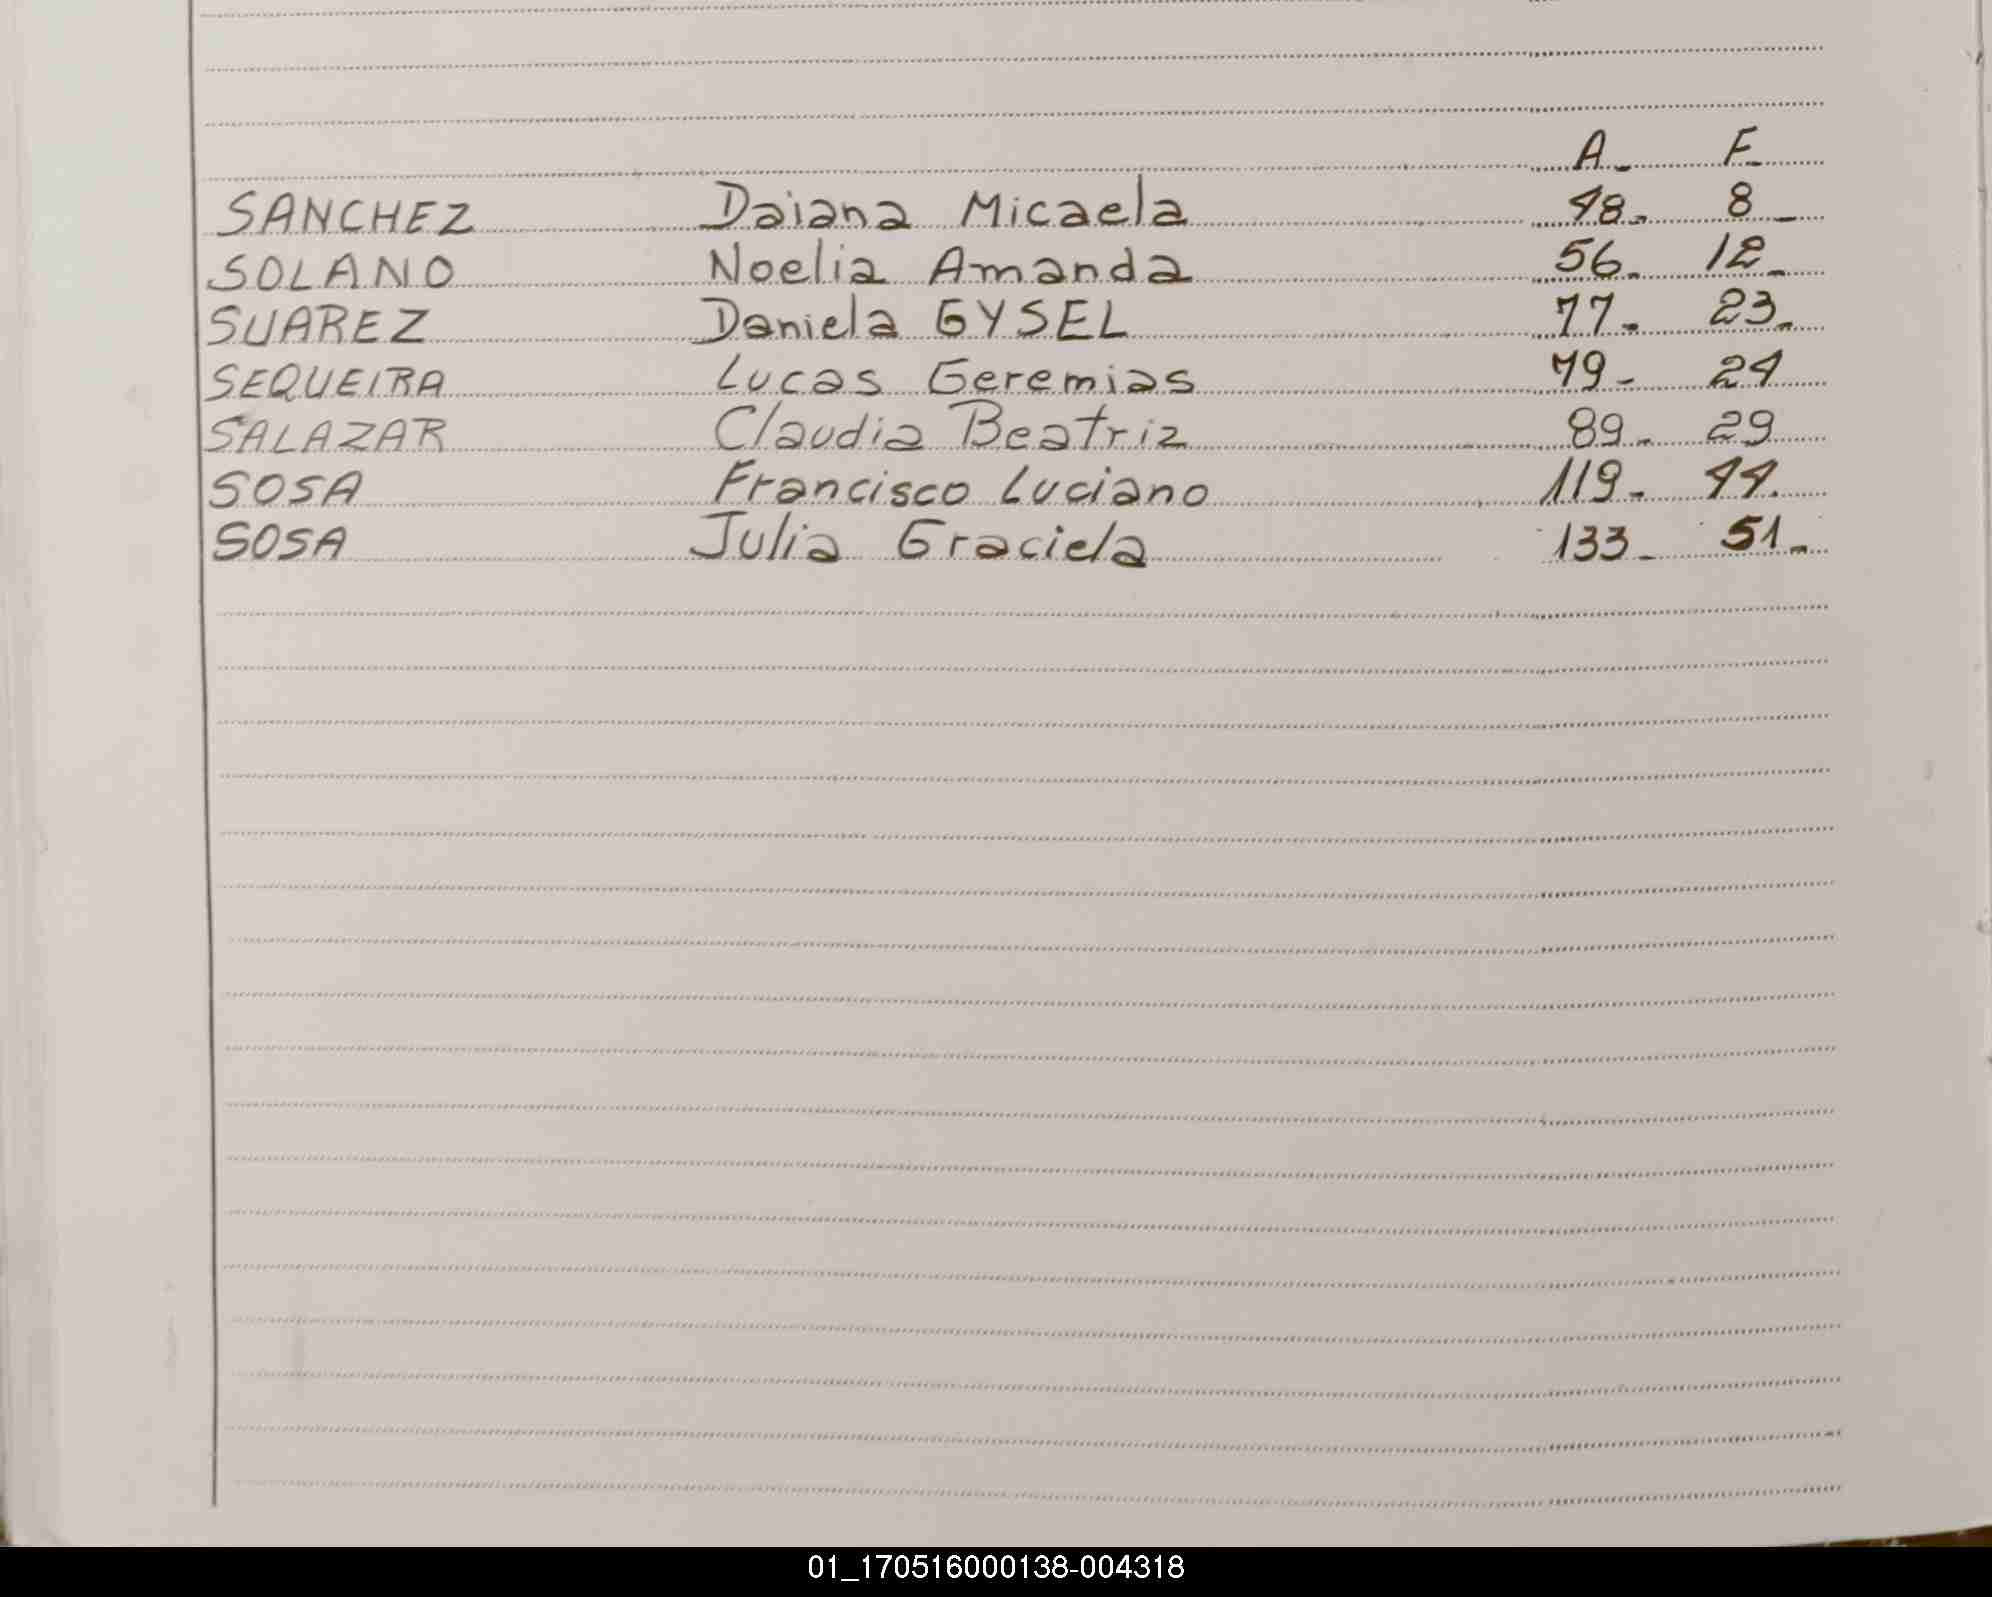 A_ F_
SANCHEZ Daiana Micaela 48- 8_
SOLANO Noelia Amanda 56- 12_
SUAREZ Daniela GYSEL 77- 23-
SEQUEIRA Lucas Geremias 79- 24
SALAZAR Claudia Beatriz 89- 29
SOSA Francisco Luciano 119- 44.
SOSA Julia Graciela 133- 51-
01_170516000138-004318